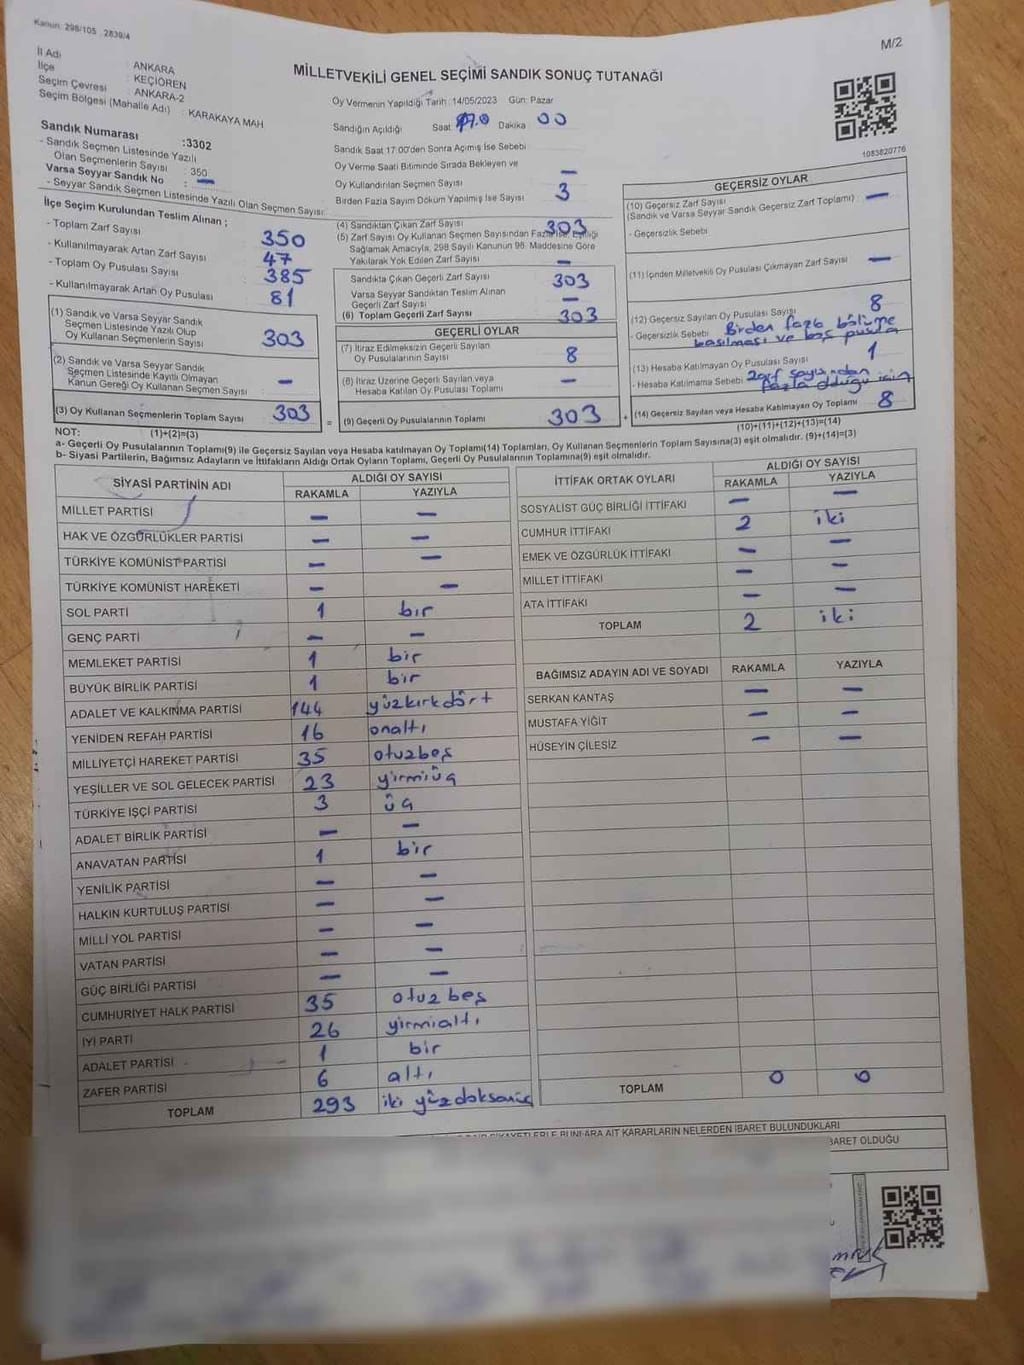 Kanun: 298/105 , 2839/4
M/2
İl Adı : ANKARA
İlçe : KEÇİÖREN
Seçim Çevresi : ANKARA-2
Seçim Bölgesi (Mahalle Adı) : KARAKAYA MAH
MİLLETVEKİLİ GENEL SEÇİMİ SANDIK SONUÇ TUTANAĞI
Oy Vermenin Yapıldığı Tarih :14/05/2023 Gün: Pazar
Sandığın Açıldığı Saat Dakika 00
Sandık Saat 17:00'den Sonra Açımış İse Sebebi
Oy Verme Saati Bitiminde Sırada Bekleyen ve
Oy Kullandırılan Seçmen Sayısı —
Birden Fazla Sayım Döküm Yapılmış İse Sayısı 3
1083820776
Sandık Numarası :3302
- Sandık Seçmen Listesinde Yazılı
Olan Seçmenlerin Sayısı : 350
Varsa Seyyar Sandık No : —
- Seyyar Sandık Seçmen Listesinde Yazılı Olan Seçmen Sayısı:
İlçe Seçim Kurulundan Teslim Alınan ;
- Toplam Zarf Sayısı 350
- Kullanılmayarak Artan Zarf Sayısı 47
- Toplam Oy Pusulası Sayısı 385
- Kullanılmayarak Artan Oy Pusulası 81
(1) Sandık ve Varsa Seyyar Sandık
Seçmen Listesinde Yazılı Olup
Oy Kullanan Seçmenlerin Sayısı 303
(2) Sandık ve Varsa Seyyar Sandık
Seçmen Listesinde Kayıtlı Olmayan
Kanun Gereği Oy Kullanan Seçmen Sayısı —
(3) Oy Kullanan Seçmenlerin Toplam Sayısı 303
(1)+(2)=(3)
(4) Sandıktan Çıkan Zarf Sayısı 303
(5) Zarf Sayısı Oy Kullanan Seçmen Sayısından Fazla İse, Eşitliği
Sağlamak Amacıyla, 298 Sayılı Kanunun 98. Maddesine Göre
Yakılarak Yok Edilen Zarf Sayısı —
Sandıkta Çıkan Geçerli Zarf Sayısı 303
Varsa Seyyar Sandıktan Teslim Alınan
Geçerli Zarf Sayısı —
(6) Toplam Geçerli Zarf Sayısı 303
GEÇERLİ OYLAR
(7) İtiraz Edilmeksizin Geçerli Sayılan
Oy Pusulalarının Sayısı 8
(8) İtiraz Üzerine Geçerli Sayılan veya
Hesaba Katılan Oy Pusulası Toplamı —
= (9) Geçerli Oy Pusulalarının Toplamı 303 +
GEÇERSİZ OYLAR
(10) Geçersiz Zarf Sayısı
(Sandık ve Varsa Seyyar Sandık Geçersiz Zarf Toplamı) : —
- Geçersizlik Sebebi
(11) İçinden Milletvekili Oy Pusulası Çıkmayan Zarf Sayısı —
(12) Geçersiz Sayılan Oy Pusulası Sayısı 8
- Geçersizlik Sebebi Birden fazla bölüme
basılması ve boş pusula
(13) Hesaba Katılmayan Oy Pusulası Sayısı 1
- Hesaba Katılmama Sebebi Zarf sayısından
fazla olduğu için
(14) Geçersiz Sayılan veya Hesaba Katılmayan Oy Toplamı 8
(10)+(11)+(12)+(13)=(14)
NOT:
a- Geçerli Oy Pusulalarının Toplamı(9) ile Geçersiz Sayılan veya Hesaba katılmayan Oy Toplamı(14) Toplamları, Oy Kullanan Seçmenlerin Toplam Sayısına(3) eşit olmalıdır. (9)+(14)=(3)
b- Siyasi Partilerin, Bağımsız Adayların ve İttifakların Aldığı Ortak Oyların Toplamı, Geçerli Oy Pusulalarının Toplamına(9) eşit olmalıdır.
SİYASİ PARTİNİN ADI ALDIĞI OY SAYISI
RAKAMLA YAZIYLA
MİLLET PARTİSİ — —
HAK VE ÖZGÜRLÜKLER PARTİSİ — —
TÜRKİYE KOMÜNİST PARTİSİ — —
TÜRKİYE KOMÜNİST HAREKETİ — —
SOL PARTİ 1 bir
GENÇ PARTİ — —
MEMLEKET PARTİSİ 1 bir
BÜYÜK BİRLİK PARTİSİ 1 bir
ADALET VE KALKINMA PARTİSİ 144 yüzkırkdört
YENİDEN REFAH PARTİSİ 16 onaltı
MİLLİYETÇİ HAREKET PARTİSİ 35 otuzbeş
YEŞİLLER VE SOL GELECEK PARTİSİ 23 yirmiüç
TÜRKİYE İŞÇİ PARTİSİ 3 üç
ADALET BİRLİK PARTİSİ — —
ANAVATAN PARTİSİ 1 bir
YENİLİK PARTİSİ — —
HALKIN KURTULUŞ PARTİSİ — —
MİLLİ YOL PARTİSİ — —
VATAN PARTİSİ — —
GÜÇ BİRLİĞİ PARTİSİ — —
CUMHURİYET HALK PARTİSİ 35 otuzbeş
İYİ PARTİ 26 yirmialtı
ADALET PARTİSİ 1 bir
ZAFER PARTİSİ 6 altı
TOPLAM 293 iki yüzdoksanüç
İTTİFAK ORTAK OYLARI ALDIĞI OY SAYISI
RAKAMLA YAZIYLA
SOSYALİST GÜÇ BİRLİĞİ İTTİFAKI — —
CUMHUR İTTİFAKI 2 iki
EMEK VE ÖZGÜRLÜK İTTİFAKI — —
MİLLET İTTİFAKI — —
ATA İTTİFAKI — —
TOPLAM 2 iki
BAĞIMSIZ ADAYIN ADI VE SOYADI RAKAMLA YAZIYLA
SERKAN KANTAŞ — —
MUSTAFA YİĞİT — —
HÜSEYİN ÇİLESİZ — —
TOPLAM 0 0
BUNLARA AİT KARARLARIN NELERDEN İBARET BULUNDUKLARI
BARET OLDUĞU